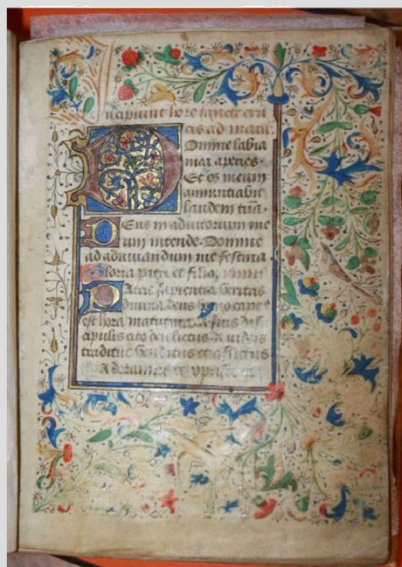 Incipiunt hore sancte cru
cis ad matu.
Domine labia
mea aperies.
Et os meum
annuntiabit
laudem tuā.
Deus in adiutorium me
um intende. Domine
ad adiuuandum me festina
Gloria patri et filio
Patris sapientia veritas
diuina deus homo captus
est hora matutina a suis dis
cipulis cito derelictus a iudeis
traditus venditus et afflictus